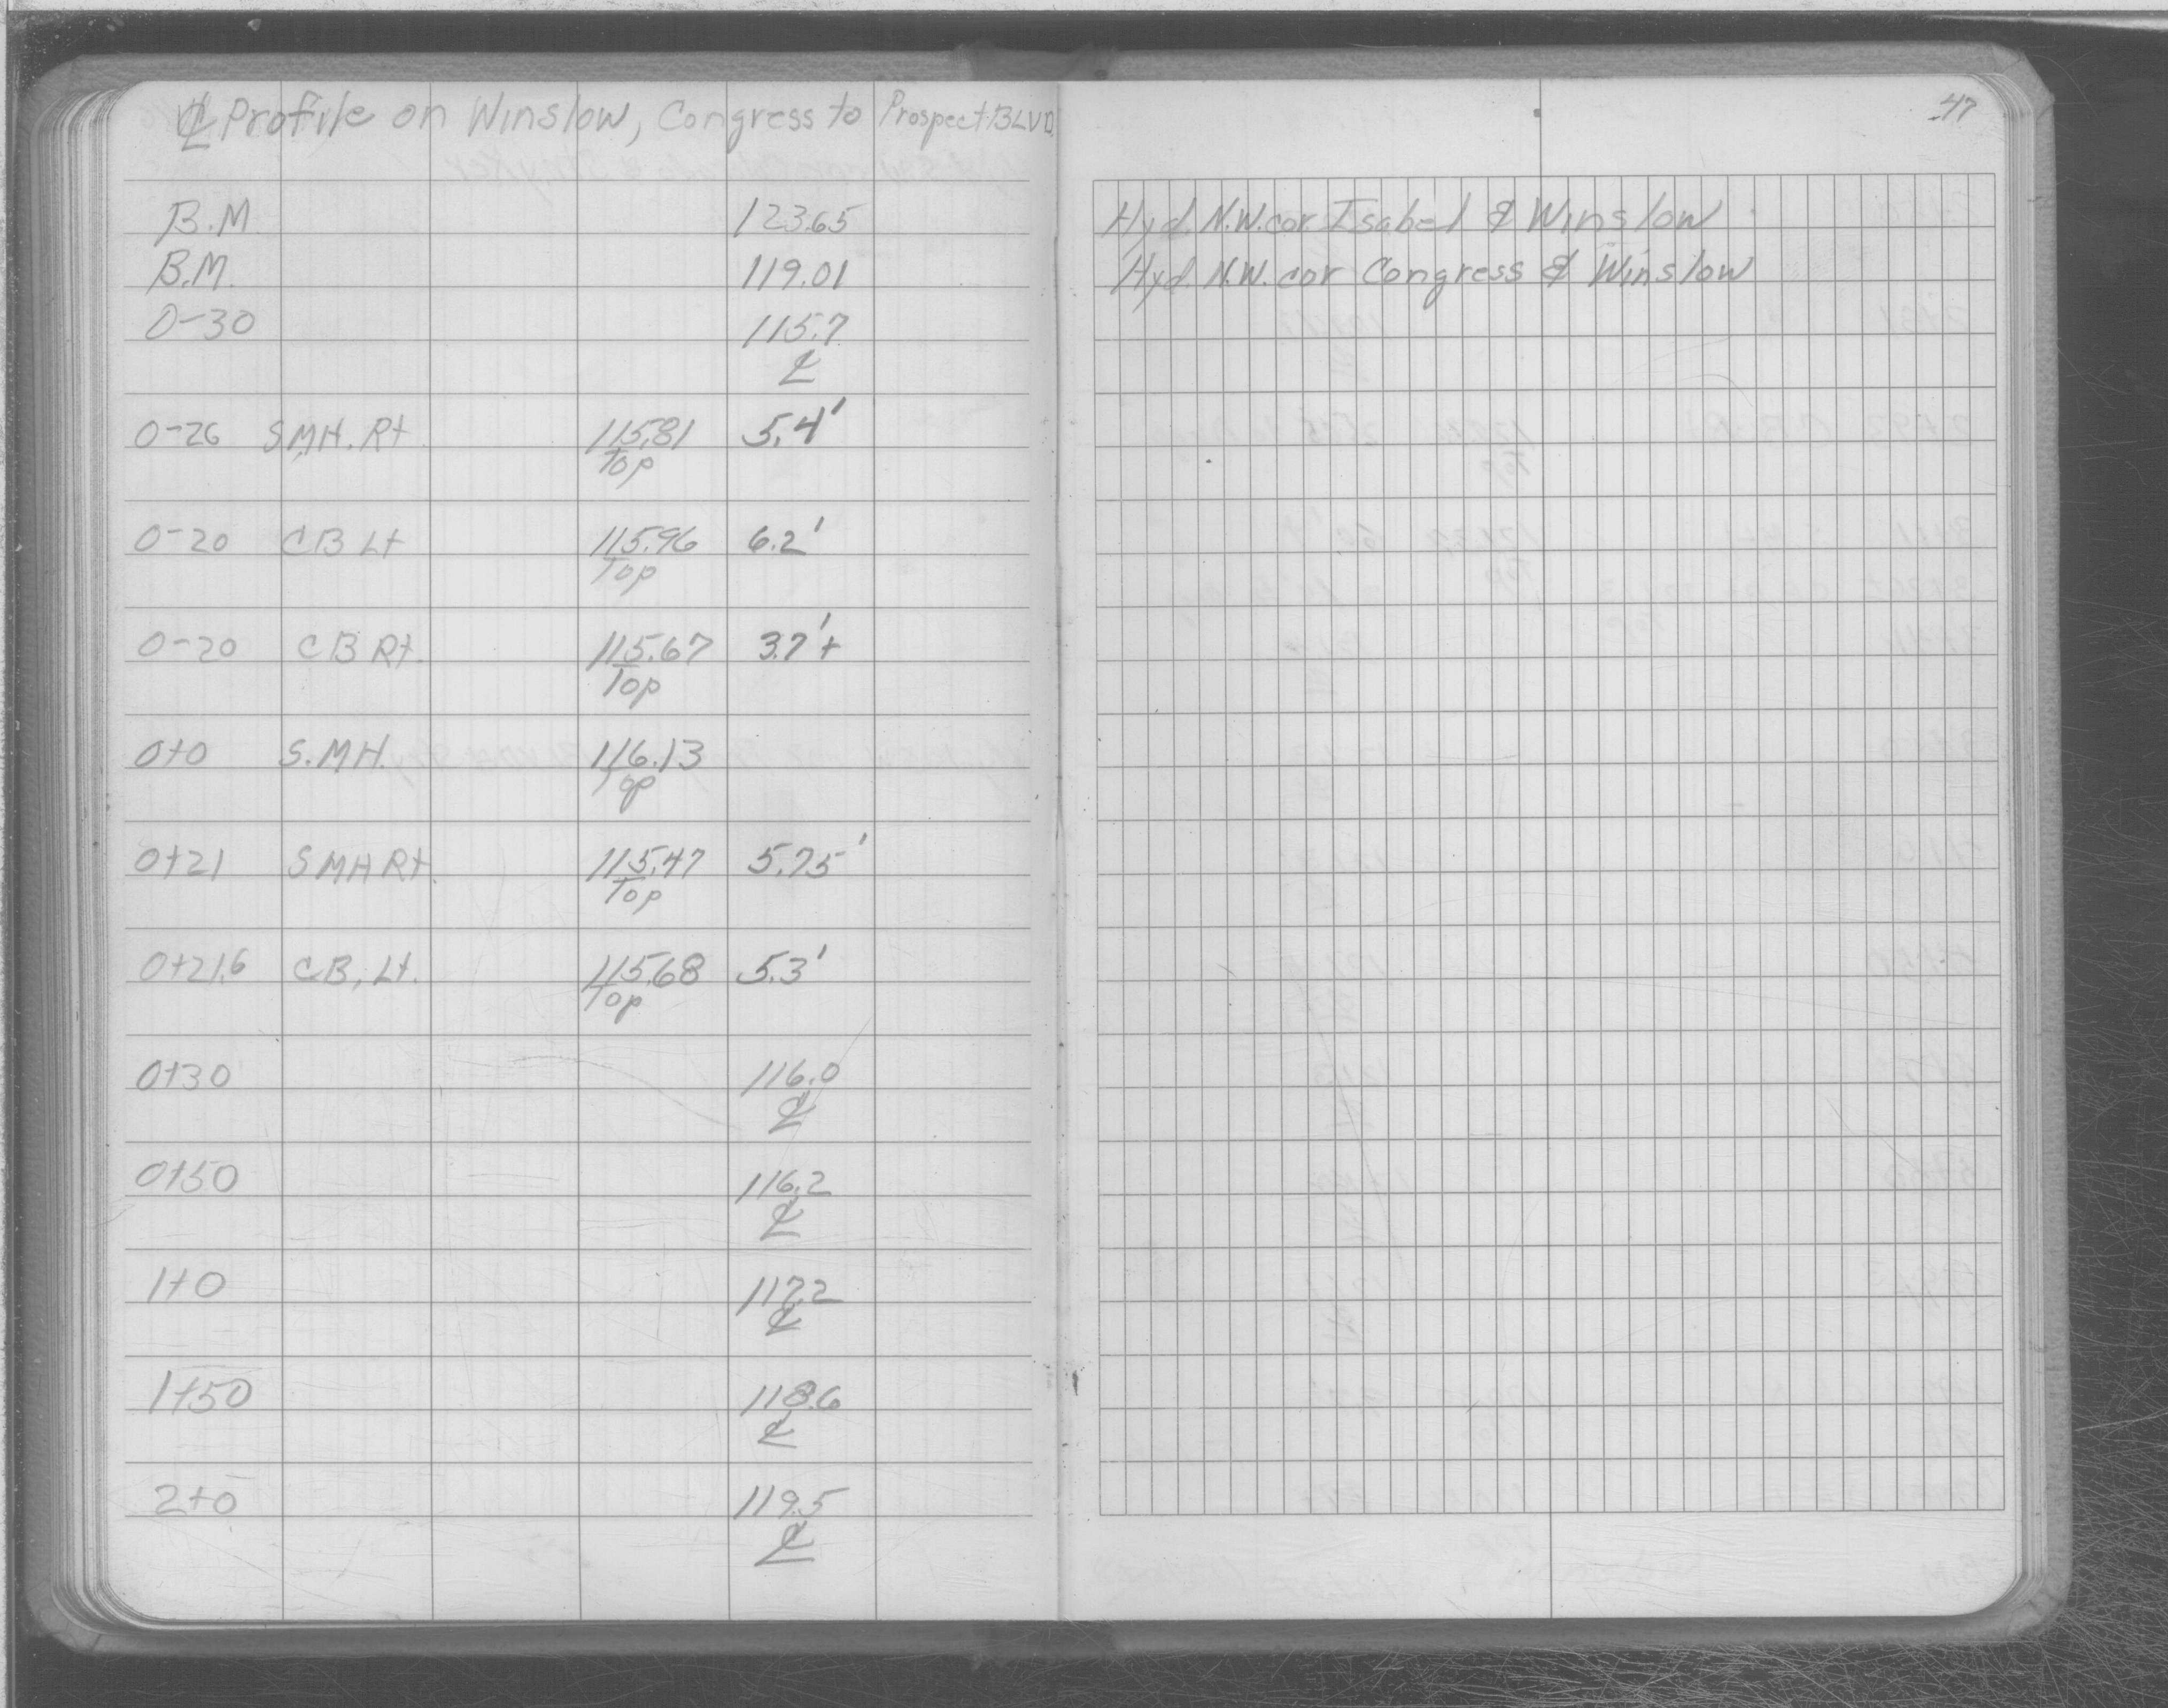 ℄ Profile on Winslow, Congress to Prospect BLVD.
47
B.M. 123.65 Hyd. N.W. cor. Isabel & Winslow
B.M. 119.01 Hyd. N.W. cor Congress & Winslow
0-30 115.7
℄
0-26 S.M.H. Rt. 115.81 5.4'
Top
0-20 CB Lt 115.96 6.2'
Top
0-20 CB Rt. 115.67 3.7'+
Top
0+0 S.M.H. 116.13
Top
0+21 SMH Rt. 115.47 5.75'
Top
0+21.6 C.B, Lt. 115.68 5.3'
Top
0+30 116.0
℄
0+50 116.2
℄
1+0 117.2
℄
1+50 118.6
℄
2+0 119.5
℄